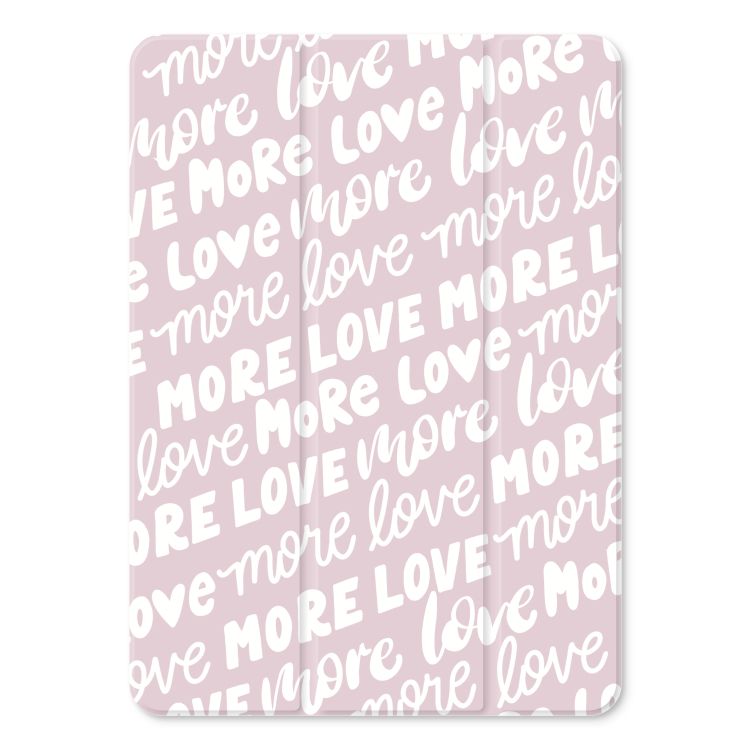 more lo
more love MORE
VE MoRe Love MoRe
e Love more love m
more love more lo
E MORE LOVE MORE L
love MoRe Love mor
ORE LOVE more love
more love MORE
ove MORE LOVE more
ove more love MoR
LOVE more love
MORE L